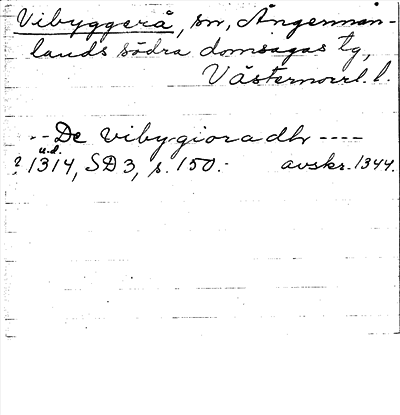 Vibyggerå, sn, Ångerman-
lands södra domsagas tg,
Västernorrl. l.
-- De vibygioradhr ----
u.d.
? 1314, SD 3, s. 150.- avskr. 1344.